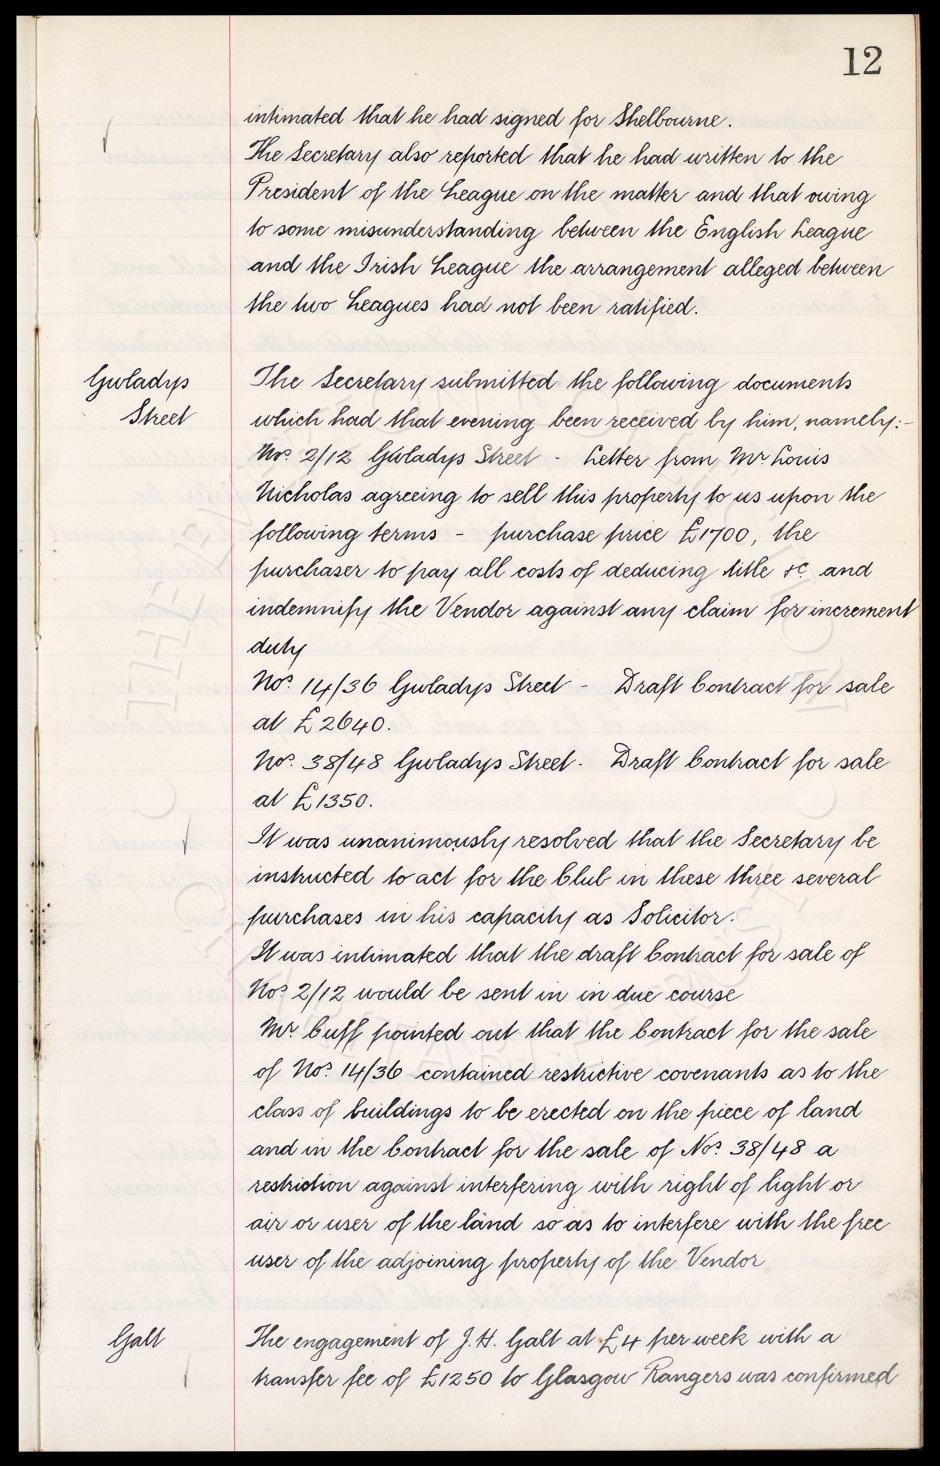 12
intimated that he had signed for Shelbourne.
The Secretary also reported that he had written to the
President of the League on the matter and that owing
to some misunderstanding between the English League
and the Irish League the arrangement alleged between
the two Leagues had not been ratified.
Gwladys
Street
The Secretary submitted the following documents
which had that evening been received by him, namely:-
Nos. 2/12 Gwladys Street - Letter from Mr Louis
Nicholas agreeing to sell this property to us upon the
following terms - purchase price £1700, the
purchaser to pay all costs of deducing title &c and
indemnify the Vendor against any claim for increment
duty
Nos. 14/36 Gwladys Street - Draft Contract for sale
at £2640.
Nos. 38/48 Gwladys Street - Draft Contract for sale
at £1350.
It was unanimously resolved that the Secretary be
instructed to act for the Club in these three several
purchases in his capacity as Solicitor.
It was intimated that the draft Contract for sale of
Nos. 2/12 would be sent in in due course
Mr Cuff pointed out that the Contract for the sale
of Nos. 14/36 contained restrictive covenants as to the
class of buildings to be erected on the piece of land
and in the Contract for the sale of Nos. 38/48 a
restriction against interfering with right of light or
air or user of the land so as to interfere with the free
user of the adjoining property of the Vendor
Galt
The engagement of J.H. Galt at £4 per week with a
transfer fee of £1250 to Glasgow Rangers was confirmed